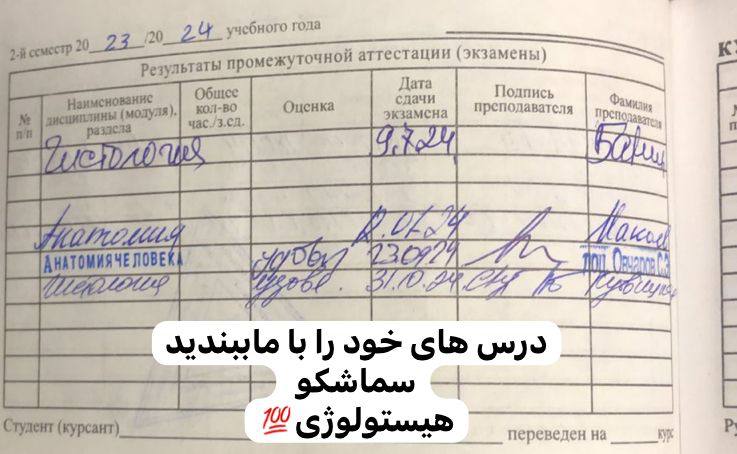 2-й семестр 20 23 /20 24 учебного года
Результаты промежуточной аттестации (экзамены)
№ п/п
Наименование дисциплины (модуля), раздела
Общее кол-во час./з.ед.
Оценка
Дата сдачи экзамена
Подпись преподавателя
Фамилия преподавателя
Гистология 9.7.24
Анатомия 12.07.24
АНАТОМИЯ ЧЕЛОВЕКА 23.09.24 Овчаров С.Э.
Гистология удовл. 31.10.24
درس های خود را با ماببندید
سماشکو
هیستولوژی💯
Студент (курсант)
переведен на курс